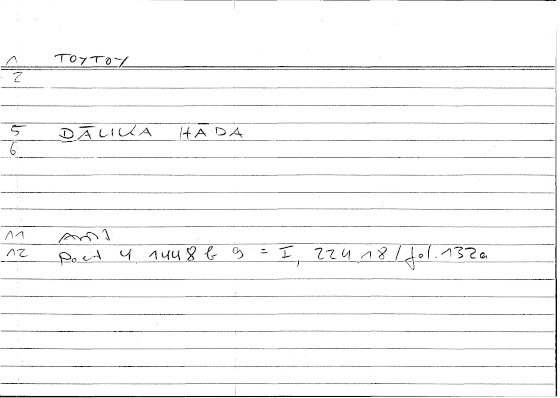 1 TOYTOY
2
5 DĀLIKA HĀDA
6
11
12 post 4 1448 b 9 = I, 224.18 / fol. 132a